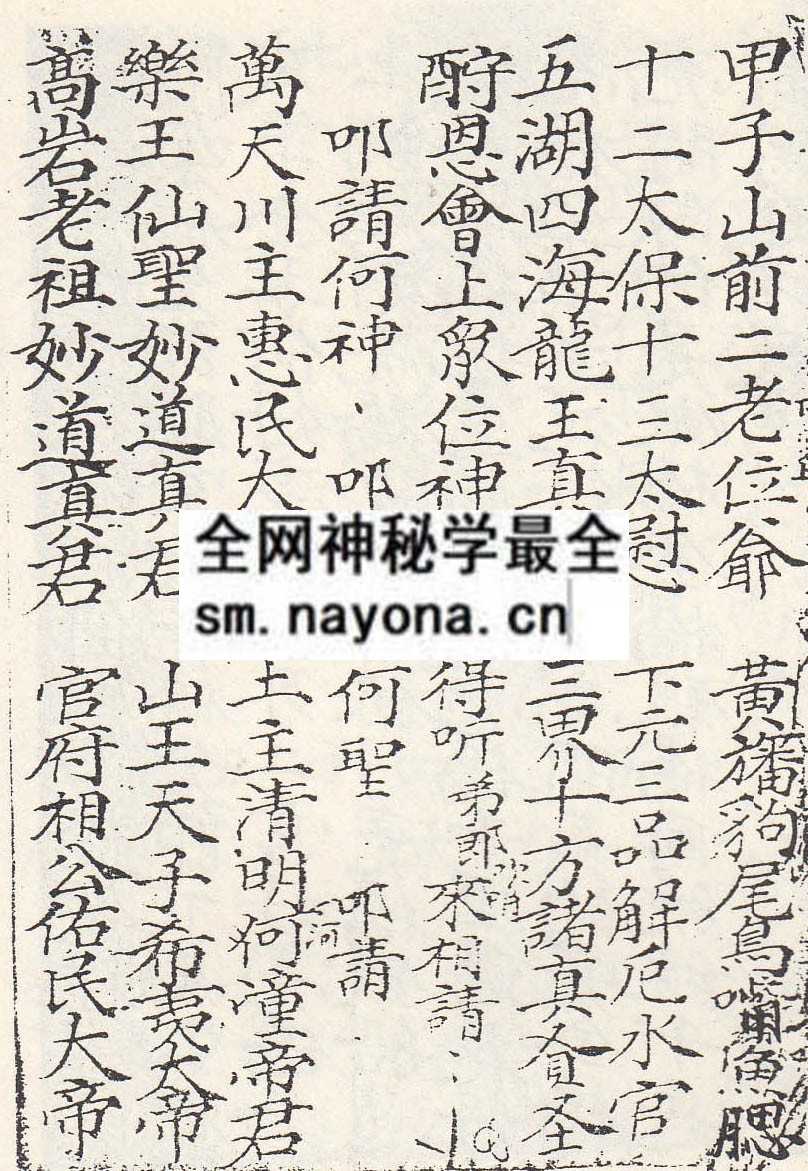 甲子山前二老位爺 黃旛豹尾鳥嘴魚腮
十二太保十三太慰 下元三品解厄水官
五湖四海龍王真 三界十方諸真貟圣
酧恩會上眾位神 得听弟郎來相請
叩請何神 叩 何聖 叩請
萬天川主惠民大 土主清明 潼帝君
樂王仙聖妙道真君 山王天子希夷大帝
高岩老祖妙道真君 官府相公佑民大帝
全网神秘学最全
sm.nayona.cn